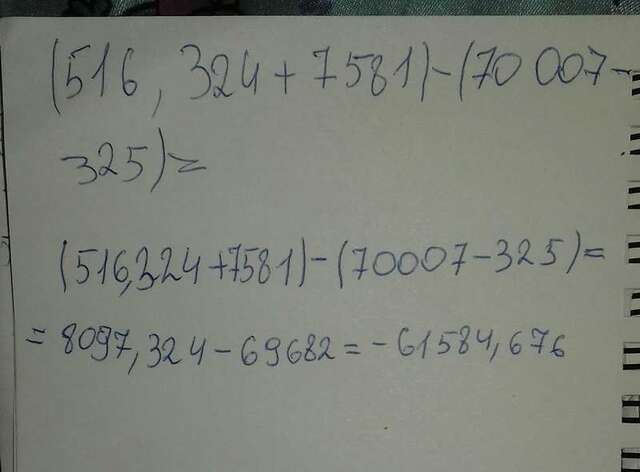 (516, 324 + 7581) - (70 007 -
325) =
(516,324 + 7581) - (70007 - 325) =
= 8097,324 - 69682 = - 61584,676